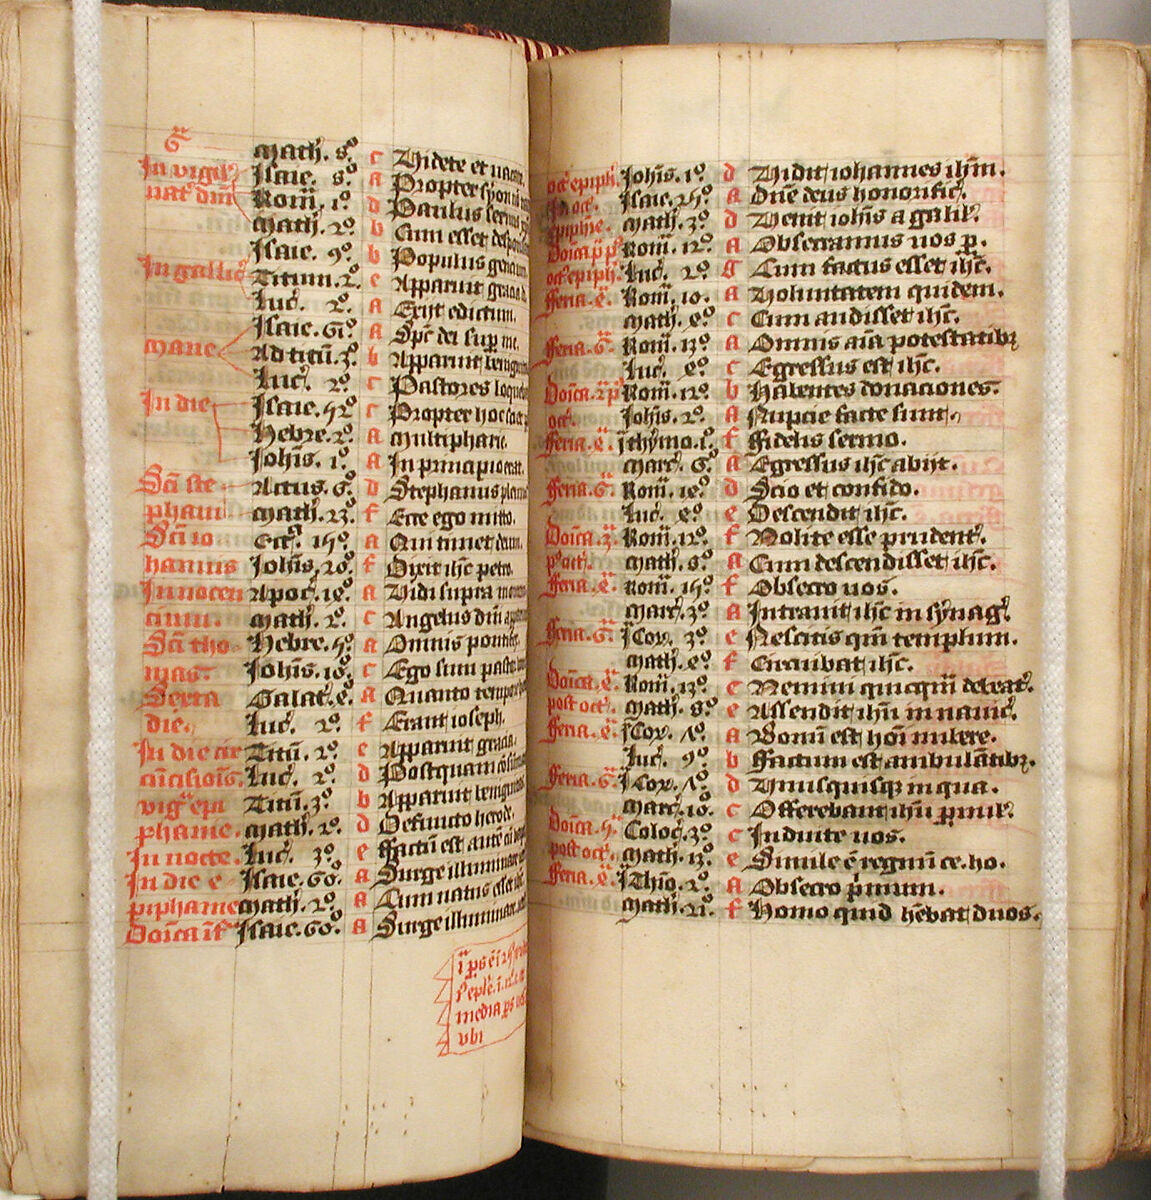 6ª Math. 8º c Videte et
In vigil' Isaie. 8º a Propter syon
nat' dñi Rom. 1º d Paulus
Math. 2º b Cum esset
Isaie. 9º b Populus
In gallic' Titum. 2º e Apparuit gracia
Luc'. 2º a Exijt edictum.
Isaie. 61º a Spc dei sup me.
mane Ad titu. 3º b Apparuit
Luc'. 2º c Pastores
In die Isaie. 52º c Propter hoc
Hebre. 1º a Multipharie.
Johis. 1º a In principio erat.
Sci ste Actus. 6º d Stephanus
phani Math. 23º f Ecce ego mitto.
Sci io Eccª. 15º a Qui timet deum.
hannis Johis. 20º f Dixit ihc petro.
Innocen Apoc'. 14º a Vidi supra
cium. Math. 2º c Angelus dni
Sci tho Hebre. 5º a Omnis pontifex.
mas Johis. 10º c Ego sum pastor
Sexta Galat'. 4º a Quanto tempore
die. Luc'. 2º f Erant ioseph.
In die cir Titu. 2º e Apparuit gracia.
cucisiois. Luc'. 2º d Postquam
vigª epi Titu. 3º b Apparuit
phanie. Math. 2º d Defuncto herode.
In nocte. Luc'. 3º e Factu est aute
In die e Isaie. 60º a Surge illuminare
piphanie Math. 2º a Cum natus esset
Doica if Isaie. 60º a Surge illuminare
media ps
vbi
oct' epiph'. Johis. 1º d Vidit iohannes ihm.
In oct'. Isaie. 25º a Dne deus honorific'.
epiphie. Math. 3º d Venit iohis a galil'.
Doica p p' Rom. 12º a Obsecramus uos p.
oct' epiph'. Luc'. 2º g Cum factus esset ihc.
Feria. 4ª Rom. 10. a Voluntatem quidem.
Math. 4º c Cum audisset ihc.
Feria. 6ª Rom. 13º a Omnis aia potestatibz
Luc'. 4º c Egressus est ihc.
Doica. 2ª p' Rom. 12º b Habentes donaciones.
oct'. Johis. 2º a Nupcie facte sunt.
Feria. 4ª j thymo. 1º f Fidelis sermo.
Marc'. 6º a Egressus ihc abijt.
Feria. 6ª Rom. 14º d Scio et confido.
Luc'. 4º e Descendit ihc.
Doica. 3ª Rom. 12º f Nolite esse prudent'.
p' oct'. Math. 8º a Cum descendisset ihc.
Feria. 4ª Rom. 15º f Obsecro uos.
Marc'. 3º a Intrauit ihc in synag'.
Feria. 6ª j Cor. 3º e Nescitis qm templum.
Math. 4º f Circuibat ihc.
Doica. 4ª Rom. 13º c Nemini quicqm debeat'.
post oct'. Math. 8º e Assendit ihu in nauic'.
Feria. 4ª j Cor. 7º a Bonu est hoi muliere.
Luc'. 9º b Factum est ambulatibz.
Feria. 6ª j Cor. 7º d Vnusquisqz in qua.
Marc'. 10º c Offerebant ihu puul'.
Doica. 5ª Coloc'. 3º c Induite uos.
post oct'. Math. 13º e Simile e regnu ce. ho.
Feria. 4ª j Thio. 2º a Obsecro primum.
Math. 21º f Homo quid hebat duos.